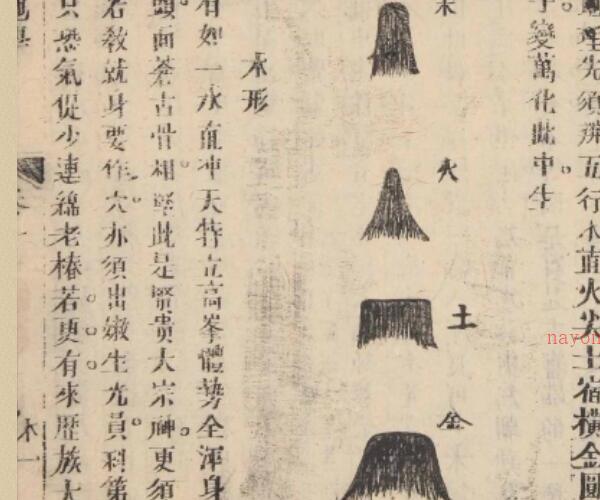 理先須辨五行木直火尖土宿橫金圓
千變萬化此中生
木
火
土
金
木形
有如一木直冲天特立高峯體勢全渾身
頭面蒼古骨相堅此是賢貴大宗神更須
若教就身要作穴亦須出嫩生光員科第
只恐氣促少連綿老椿若更有來歷族大
nayon